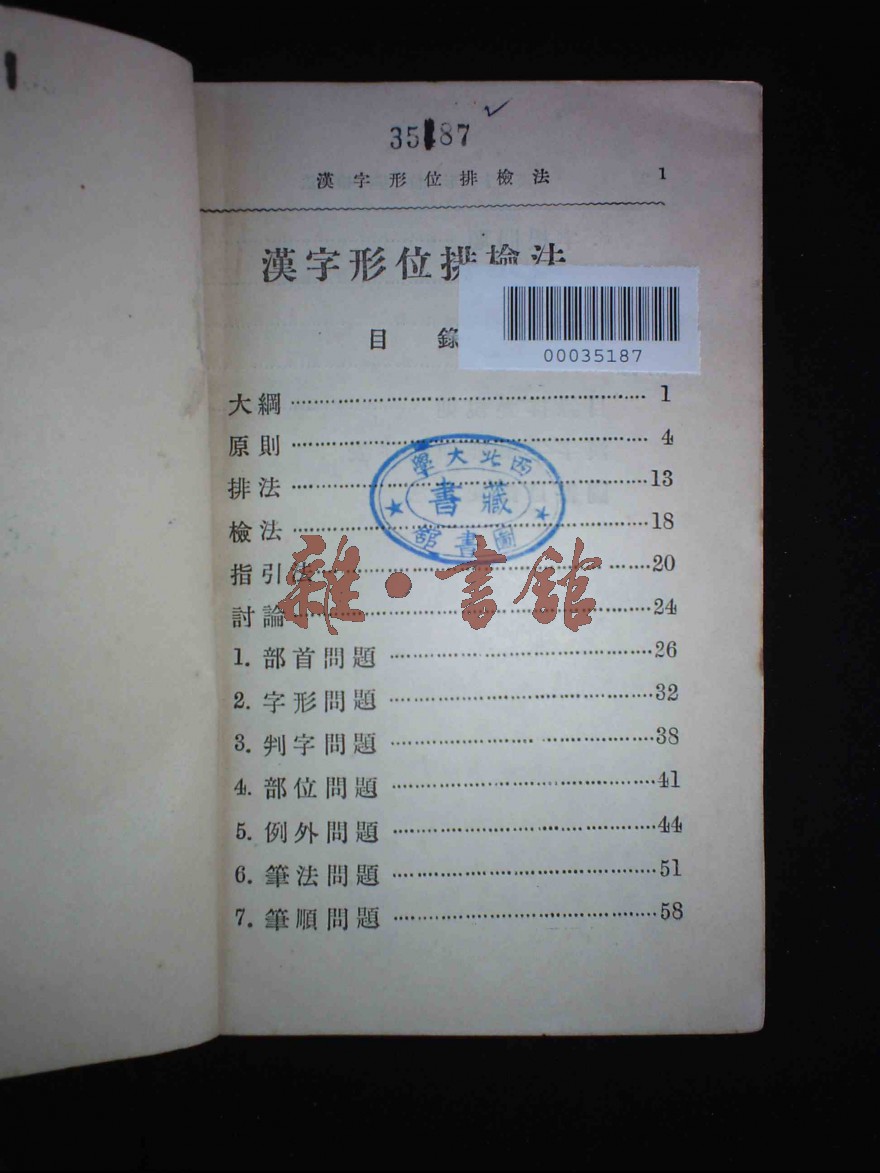 35187
漢字形位排檢法 1
漢字形位排檢法
00035187
目錄
大綱 1
原則 4
排法 13
檢法 18
指引法 20
討論 24
1. 部首問題 26
2. 字形問題 32
3. 判字問題 38
4. 部位問題 41
5. 例外問題 44
6. 筆法問題 51
7. 筆順問題 58
西北大學
藏書
圖書館
雜·書館